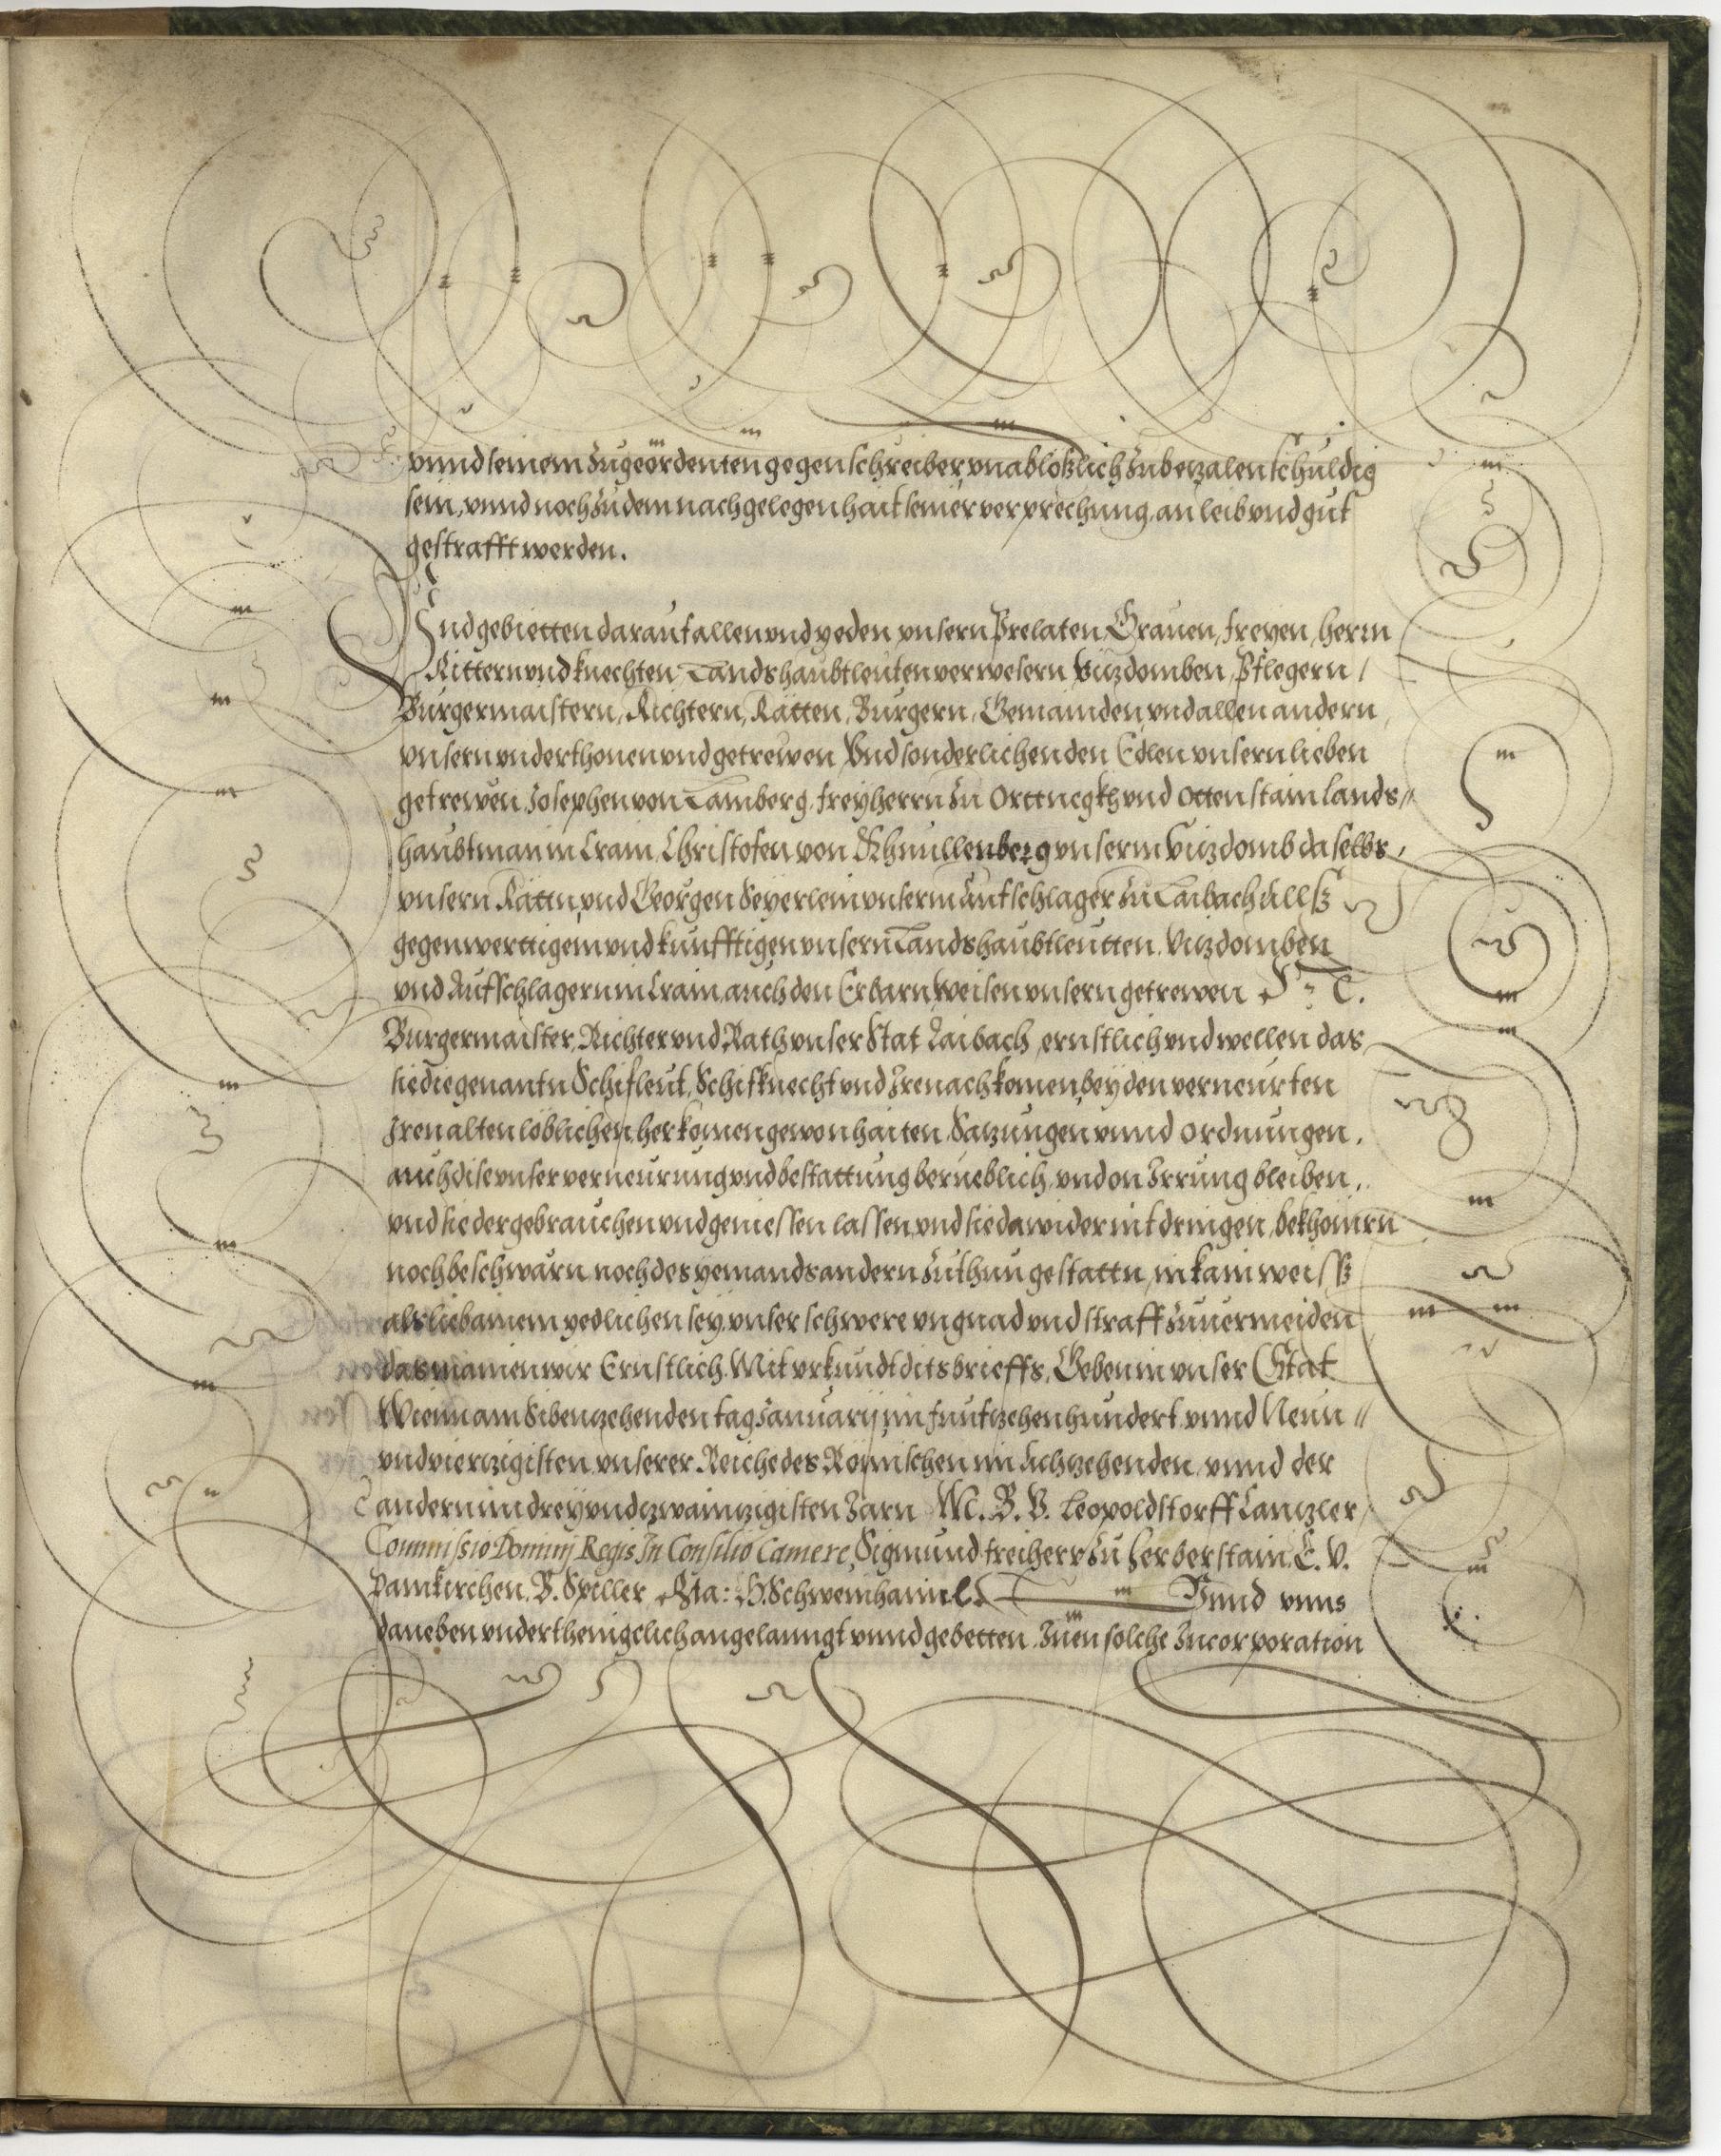 vnnd seinem Zugeordenten gegenschreiber, vnabloßlich Zubetzalen schuldig
sein, vnnd noch Zudem nach gelegenhait seiner verprechung, an leib vnd gut
gestrafft werden.
Vnd gebietten darauf allen vnd yeden vnsern Prelaten, Grauen, freyen, herrn
Rittern vnd knechten, Landshaubtleuten verwesern Vitzdomben, Pflegern /
Burgermaistern, Richtern, Rätten, Burgern, Gemainden, vnd allen andern
vnsern vnderthonen vnd getrewen Vnd sonderlichen den Edlen vnsern lieben
getrewen Josephen von Lamberg, freyherrn Zu Orttnegkh vnd Ottenstain Lands„
haubtman in Crain, Christofen von Khnullenberg vnserm Vitzdomb daselbs,
vnsern Rättn, vnd Georgen Seyerlein vnserm Aufschlager Zu Laibach Allß
gegenwerttigem vnd kunfftigen vnsern Landshaubtleutten, Vitzdomben
vnd Aufschlagern in Crain, auch den Erbarn Weisen vnsern getrewen
Burgermaister, Richter vnd Rath vnser Stat Laibach, ernstlich vnd wellen das
sie die genantn Schifleut, Schifknecht vnd Iren nachkomen, bey den verneurten
Iren alten löblichen herkomen gewonhaiten, Satzungen vnnd Ordnungen,
auch dise vnser verneurung vnd bestattung berueblich, vnd on Irrung bleiben,
vnd sie der gebrauchen vnd geniessen lassen, vnd sie dawider nit dringen, bekhomrn
noch beschwärn, noch des yemands andern Zuthun gestattn, in kain weiss
als lieb ainem yedlichen sey, vnser schwere vngnad vnd straff Zuuermeiden
das mainen wir Ernstlich. Mit vrkundt dits brieffs, Geben in vnser Stat
Wienn am Sibentzehenden tag Januarij, im funftzehenhundert, vnnd Neun„
vndviertzigisten, vnserer Reiche des Römischen im Achtzehenden, vnnd der
andern im dreyvndzwaintzigisten Jarn M. B. V. Leopoldstorff Cantzler
Commissio Dominj Regis In Consilio Camere, Sigmund freiherr Zu Herberstain, C. V.
Pamkirchen. B. Spiller, Schweinhaimel. Vnnd vnns
daneben vnderthenigclich angelanngt vnnd gebetten, Inen solche Incorporation